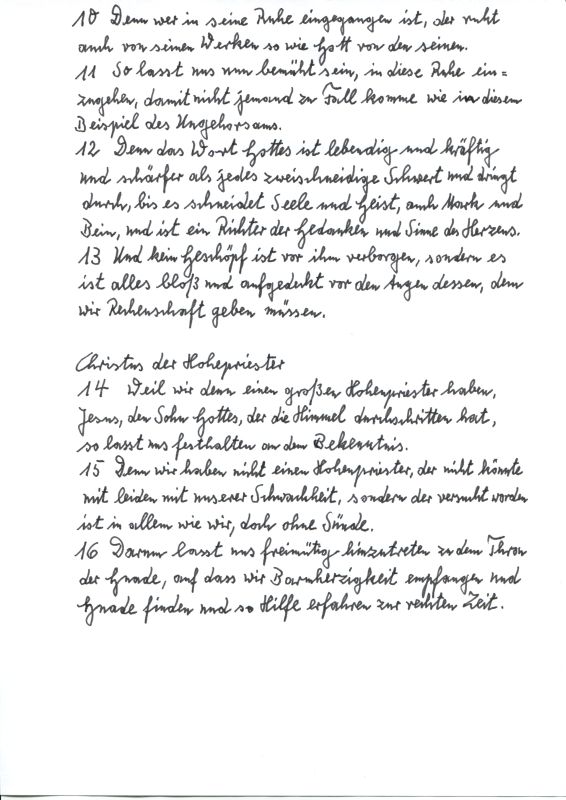 10 Denn wer in seine Ruhe eingegangen ist, der ruht
auch von seinen Werken so wie Gott von den seinen.
11 So lasst uns nun bemüht sein, in diese Ruhe ein=
zugehen, damit nicht jemand zu Fall komme wie in diesem
Beispiel des Ungehorsams.
12 Denn das Wort Gottes ist lebendig und kräftig
und schärfer als jedes zweischneidige Schwert und dringt
durch, bis es schneidet Seele und Geist, auch Mark und
Bein, und ist ein Richter der Gedanken und Sinne des Herzens.
13 Und kein Geschöpf ist vor ihm verborgen, sondern es
ist alles bloß und aufgedeckt vor den Augen dessen, dem
wir Rechenschaft geben müssen.
Christus der Hohepriester
14 Weil wir denn einen großen Hohenpriester haben,
Jesus, den Sohn Gottes, der die Himmel durchschritten hat,
so lasst uns festhalten an dem Bekenntnis.
15 Denn wir haben nicht einen Hohenpriester, der nicht könnte
mit leiden mit unserer Schwachheit, sondern der versucht worden
ist in allem wie wir, doch ohne Sünde.
16 Darum lasst uns freimütig hinzutreten zu dem Thron
der Gnade, auf dass wir Barmherzigkeit empfangen und
Gnade finden und so Hilfe erfahren zur rechten Zeit.